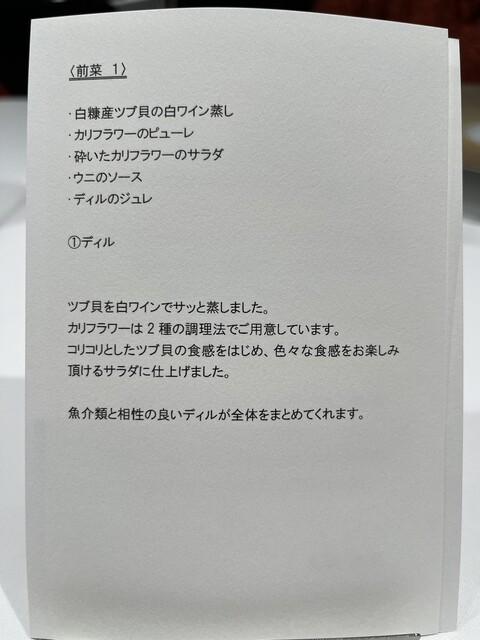 〈前菜 1〉
・白糠産ツブ貝の白ワイン蒸し
・カリフラワーのピューレ
・砕いたカリフラワーのサラダ
・ウニのソース
・ディルのジュレ
①ディル
ツブ貝を白ワインでサッと蒸しました。
カリフラワーは2種の調理法でご用意しています。
コリコリとしたツブ貝の食感をはじめ、色々な食感をお楽しみ
頂けるサラダに仕上げました。
魚介類と相性の良いディルが全体をまとめてくれます。